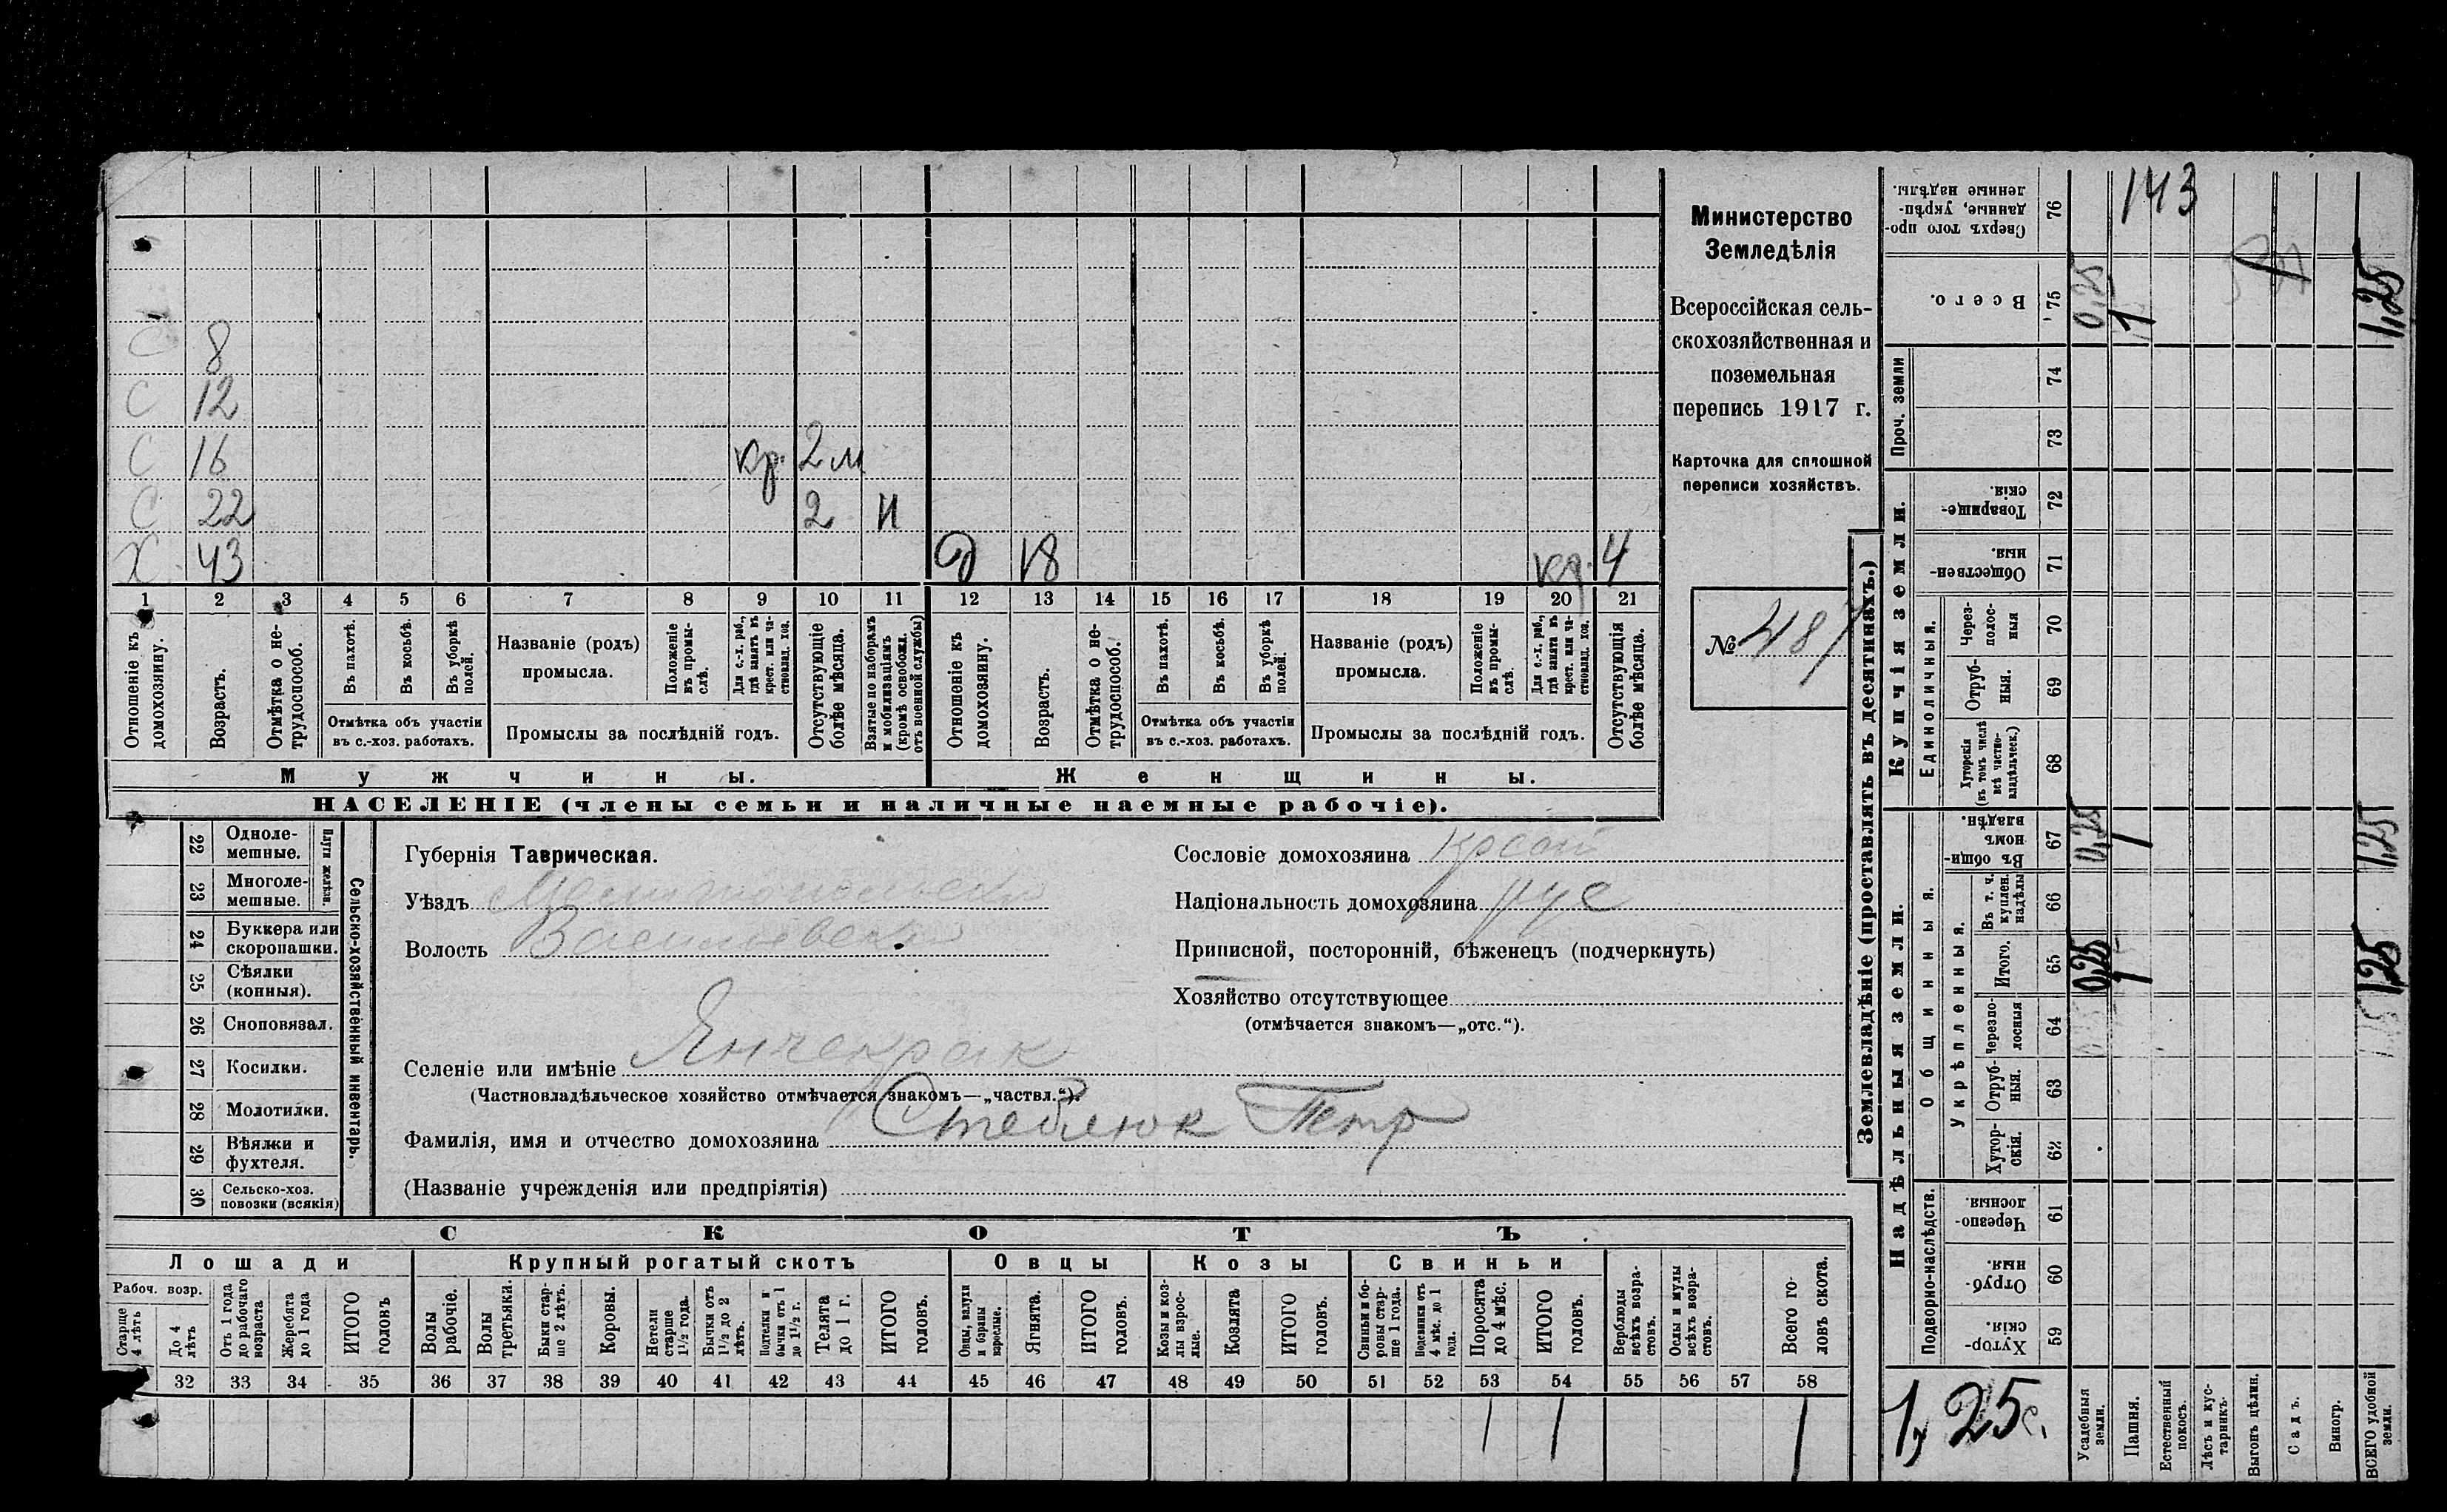 С 8
С 12
С 16 кр. 2 м
С 22 2 н
Х 43 д 18 кр. 4
1 2 3 4 5 6 7 8 9 10 11 12 13 14 15 16 17 18 19 20 21
Отношеніе къ домохозяину.
Возрастъ.
Отмѣтка о не-
трудоспособ.
Въ пахотѣ.
Въ косьбѣ.
Въ уборкѣ
полей.
Отмѣтка объ участіи
въ с.-хоз. работахъ.
Названіе (родъ)
промысла.
Положеніе
въ промы-
слѣ.
Для с.-х. раб.,
гдѣ занятъ въ
крест. или ча-
стновлад. хоз.
Промыслы за послѣдній годъ.
Отсутствующіе
болѣе мѣсяца.
Взятые по наборамъ
и мобилизаціямъ
(кромѣ освобожд.
отъ военной службы)
Отношеніе къ
домохозяину.
Возрастъ.
Отмѣтка о не-
трудоспособ.
Въ пахотѣ.
Въ косьбѣ.
Въ уборкѣ
полей.
Отмѣтка объ участіи
въ с.-хоз. работахъ.
Названіе (родъ)
промысла.
Положеніе
въ промы-
слѣ.
Для с.-х. раб.,
гдѣ занята въ
крест. или ча-
стновлад. хоз.
Промыслы за послѣдній годъ.
Отсутствующія
болѣе мѣсяца.
Мужчины.
Женщины.
НАСЕЛЕНІЕ (члены семьи и наличные наемные рабочіе).
Министерство
Земледѣлія
Всероссійская сель-
скохозяйственная и
поземельная
перепись 1917 г.
Карточка для сплошной
переписи хозяйствъ.
№ 487
22 Одноле-
мешные.
23 Многоле-
мешные.
Плуги желѣзн.
24 Буккера или
скоропашки.
25 Сѣялки
(конныя).
26 Сноповязал.
27 Косилки.
28 Молотилки.
29 Вѣялки и
фухтеля.
30 Сельско-хоз.
повозки (всякія)
Сельско-хозяйственный инвентарь.
Губернія Таврическая.
Уѣздъ Мелитопольский
Волость Васильевская
Селеніе или имѣніе Янчекрак
(Частновладѣльческое хозяйство отмѣчается знакомъ—„частвл.“).
Фамилія, имя и отчество домохозяина Стеблюк Петр
(Названіе учрежденія или предпріятія)
Сословіе домохозяина
Національность домохозяина рус
Приписной, посторонній, бѣженецъ (подчеркнуть)
Хозяйство отсутствующее
(отмѣчается знакомъ—„отс.“).
СКОТЪ
Лошади
Крупный рогатый скотъ
Овцы
Козы
Свиньи
Рабоч. возр.
Старше
4 лѣтъ
До 4
лѣтъ
Отъ 1 года
до рабочаго
возраста
Жеребята
до 1 года
ИТОГО
головъ
Волы
рабочіе.
Волы
третьяки.
Быки стар-
ше 2 лѣтъ.
Коровы.
Нетели
старше
1½ года.
Бычки отъ
1½ до 2
лѣтъ.
Подтелки и
бычки отъ 1
до 1½ г.
Телята
до 1 г.
ИТОГО
головъ.
Овцы, валухи
и бараны
взрослые.
Ягнята.
ИТОГО
головъ.
Козы и коз-
лы взрос-
лые.
Козлята
ИТОГО
головъ.
Свиньи и бо-
ровы стар-
ше 1 года.
Подсвинки отъ
4 мѣс. до 1
года.
Поросята
до 4 мѣс.
ИТОГО
головъ.
Верблюды
всѣхъ возра-
стовъ.
Ослы и мулы
всѣхъ возра-
стовъ.
Всего го-
ловъ скота.
32 33 34 35 36 37 38 39 40 41 42 43 44 45 46 47 48 49 50 51 52 53 54 55 56 57 58
1 1 1
Землевладѣніе (проставлять въ десятинахъ.)
Надѣльныя земли.
Купчія земли.
Проч. земли
Подворно-наслѣдств.
Общинныя.
Укрѣпленныя.
Единоличныя.
Сверхъ того про-
данные, укрѣп-
ленные надѣлы. 76 143
Всего. 75 0,25 1 1,25
74
73
Товарище-
скія. 72
Обществен-
ныя. 71
Через-
полос-
ныя 70
Отруб-
ныя. 69
Хуторскія
(въ томъ числѣ
всѣ частно-
владѣльческ.) 68
Въ общин-
номъ
владѣн. 67 0,25 1 1,25
Въ т. ч.
куплен.
надѣлы 66
Итого. 65 0,25 1 1,25
Черезпо-
лосныя 64
Отруб-
ныя. 63
Хутор-
скія. 62
Черезпо-
лосныя. 61
Отруб-
ныя. 60
Хутор-
скія. 59
1,25
Усадебныя
земли.
Пашня.
Естественный
покосъ.
Лѣсъ и кус-
тарникъ.
Выгонъ цѣлин.
Садъ.
Виногр.
ВСЕГО удобной
земли.